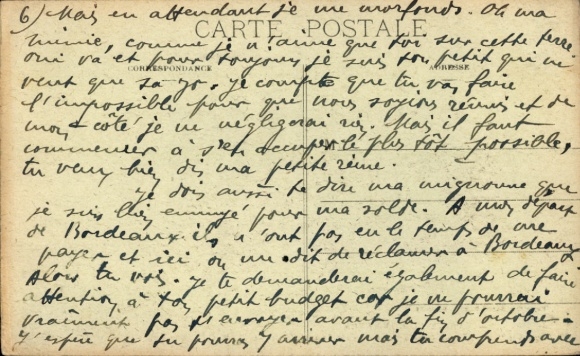 6) Mais en attendant je me morfonds. Oh ma
CARTE POSTALE
mimie, comme je n'aime que toi sur cette terre
oui va et pour toujours je suis ton petit qui ne
CORRESPONDANCE
ADRESSE
veut que sa . Je compte que tu vas faire
l'impossible pour que nous soyions réunis et de
mon côté je ne négligerai rien. Mais il faut
commencer à s'en occuper le plus tôt possible,
tu veux bien dis ma petite reine.
Je dois aussi te dire ma mignonne que
je suis bien ennuyé pour ma solde. A mon départ
de Bordeaux ils n'ont pas eu le temps de me
payer et ici on me dit de réclamer à Bordeaux
Alors tu vois. Je te demanderai également de faire
attention à ton petit budget car je ne pourrai
vraiment pas envoyer avant la fin d'octobre.
J'espère que tu pourras y arriver mais tu comprends avec